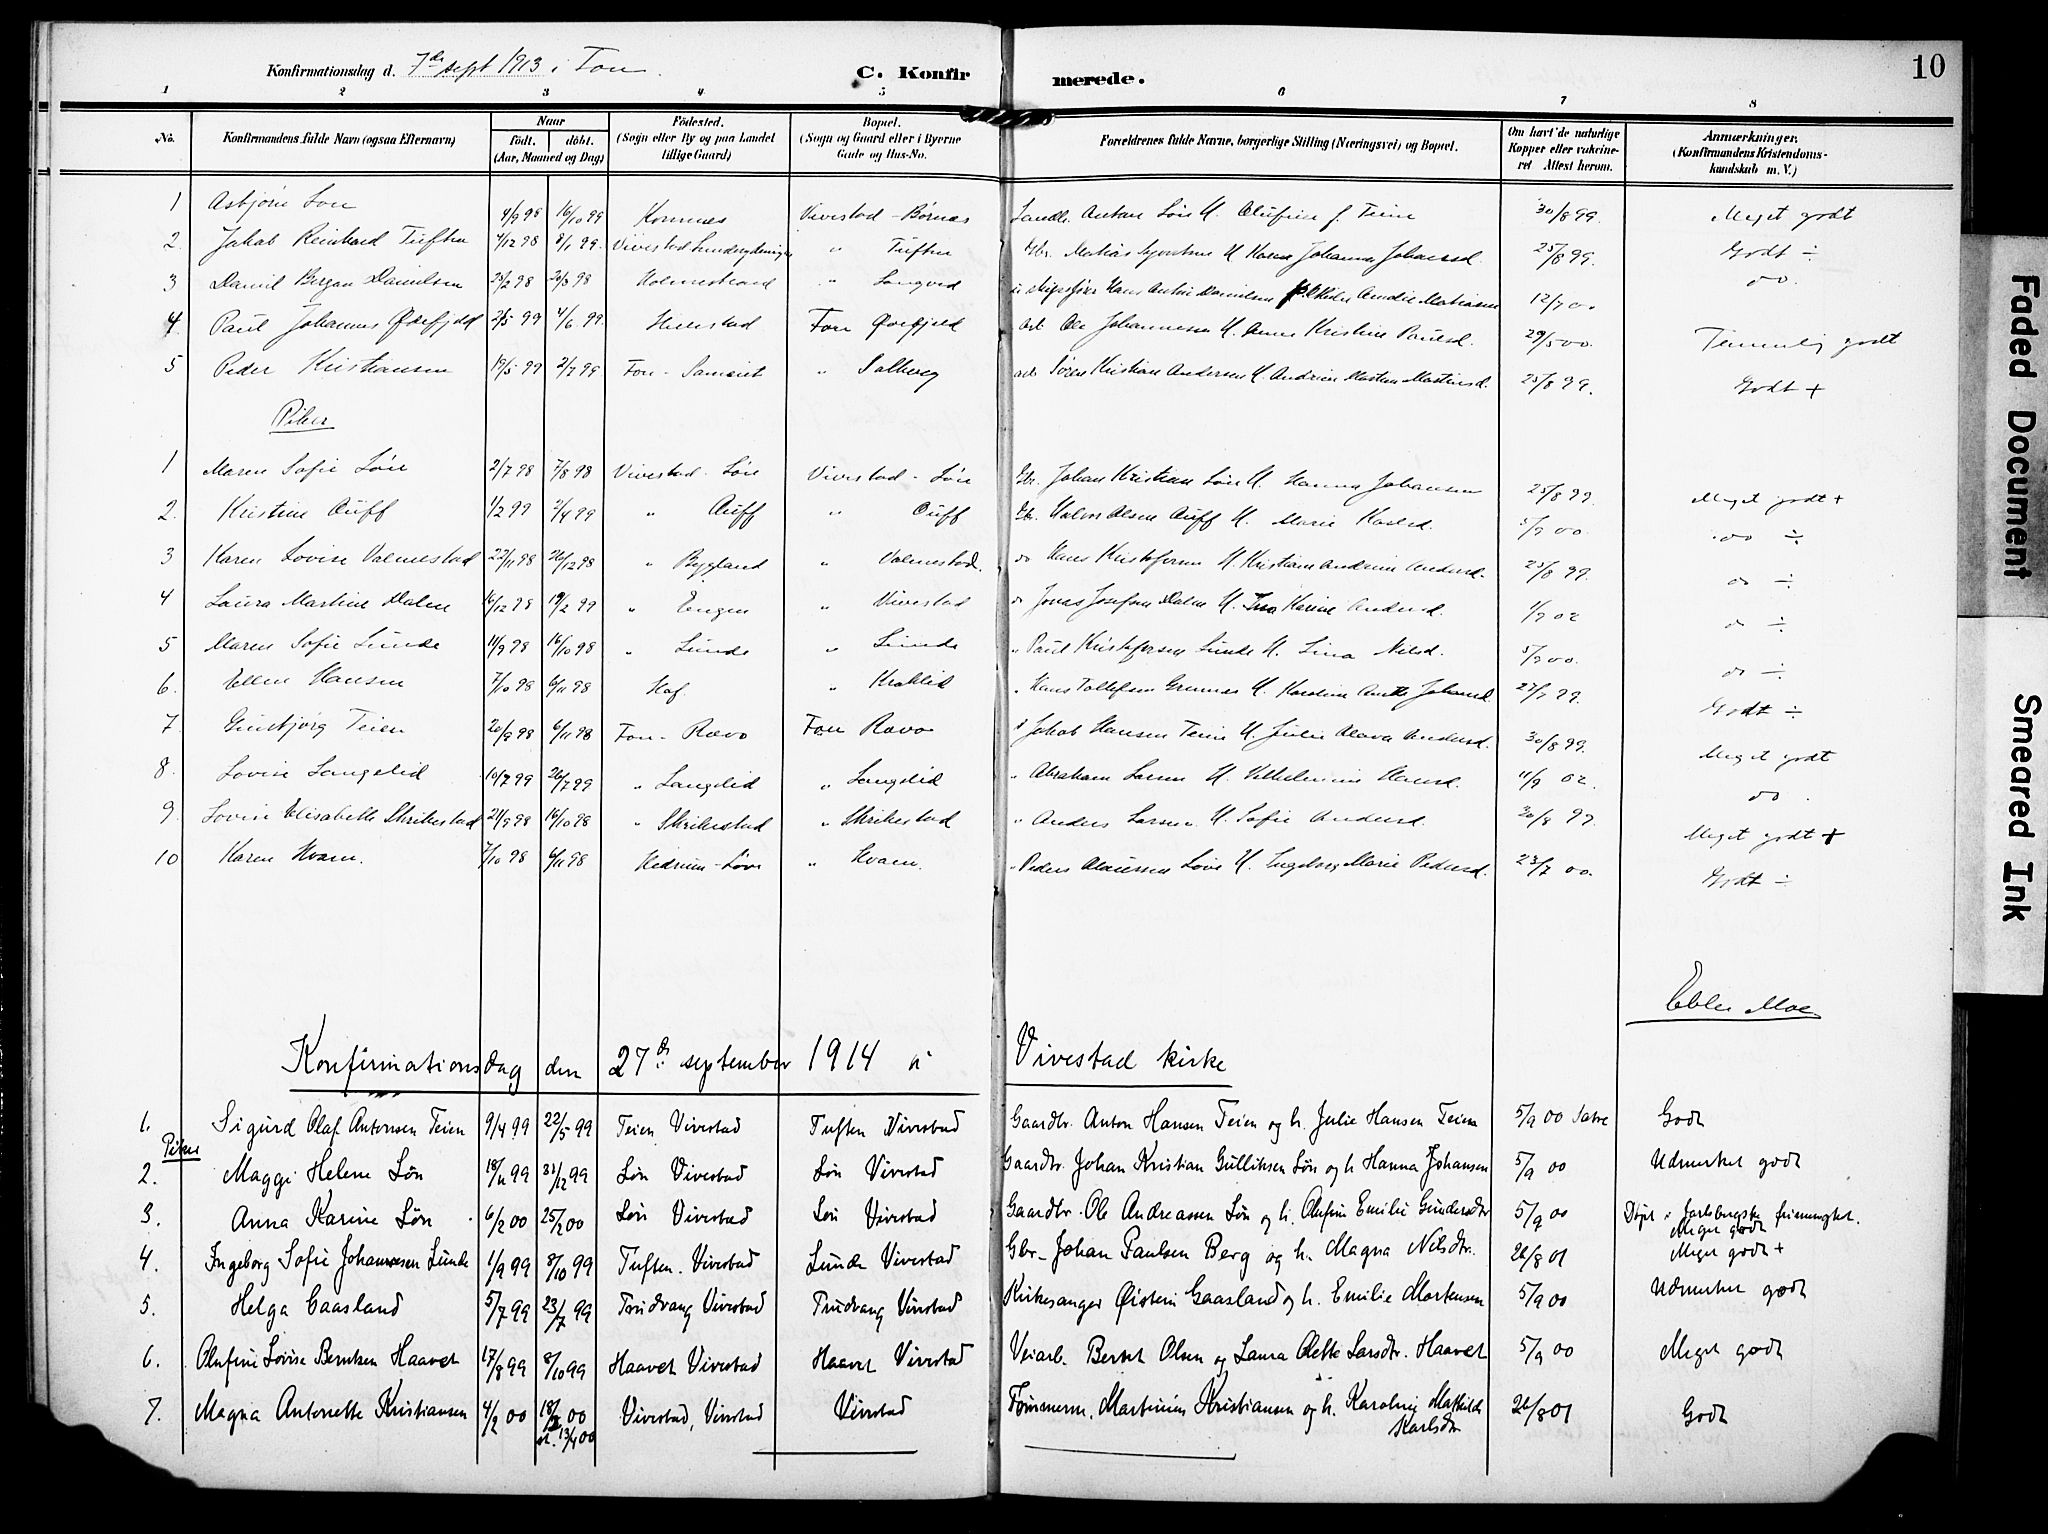 Konfirmationsdag d. 7de sept 1913 i Fon.
C. Konfirmerede.
10
1 2 3 4 5 6 7 8
No. Konfirmandens fulde Navn (ogsaa Efternavn) Naar født. døbt. (Aar, Maaned og Dag) Fødested. (Sogn eller By og paa Landet tillige Gaard) Bopæl. (Sogn og Gaard eller i Byerne Gade og Hus-No. Forældrenes fulde Navne, borgerlige Stilling (Næringsvei) og Bopæl. Om havt de naturlige Kopper eller vaccineret Attest herom. Anmærkninger. (Konfirmandens Kristendomskundskab m. V.)
1 Asbjørn Løn 4/9 98 16/10 99 Komnes Vivestad - Børnes Anton Løn Olufine f. Teien 30/8 99. Meget godt
2. Jakob Reinhard Tuften 4/12 98 8/1 99. Vivestad " Tuften Gbr. Matias Johanna 25/8 99. Godt ÷
3 Daniel Bergan Danielsen 20/3 98 Holmestrand " Langved Skipsfører Hans Anton Danielsen Amalie 12/7 00 do.
4. Paul Johannes Ødefjeld 2/5 99 4/6 99. Hillestad Fon Ødefjeld Arb. Ole Johannesen Kristine Paulsd. 29/5 00. Temmelig godt
5 Peder Kristiansen 19/5 99 2/7 99 Fon - Sameiet " Solberg arb. Søren Kristian Andersen Martinsd. 25/8 99. Godt +
Piker
1 Maren Sofie Løn 2/7 98 7/8 98 Vivestad - Løn Vivestad - Løn Gbr. Johan Kristian Løn Hanna Johansen 25/8 99. Meget godt +
2. Kristine Auff 1/2 99 2/4 99 " Auff " Auff Gbr. Halvor Olsen Auff Marie Karlsd. 5/9 00. do ÷
3 Karen Lovise Valmestad 22/11 98 26/12 98 " Bygland " Valmestad. do Hans Kristofersen Kristiane Andrine Andersd. 25/8 99. do ÷
4 Laura Martine Dalen 16/12 98 19/2 99 " Engen " Vivestad Jonas Josefsen Dalen Karine Andersd. 1/9 02 do ÷
5 Maren Sofie Lunde 11/9 98 16/10 98 " Lunde " Lunde " Paul Kristofersen Lunde Lina Nilsd. 5/9 00. do ÷
6. Ellen Hansen 7/10 98 6/11 98 Hof. " Kraklid " Hans Tollefsen Karoline Johansd. 27/7 99. Godt ÷
7. Gunbjørg Teien 20/9 98 6/11 98 Fon - Røvo Fon Rovo Jakob Hansen Teien Julie Andersd. 30/8 99. Meget godt
8. Lovise Langelid 10/7 99 26/7 99 " Langelid " Langelid " Abraham Larsen Vilhelmine Hansd. 11/9 02. do.
9. Lovise Elisabeth Skrikestad 21/9 98 16/10 98 " Skrikestad " Skrikestad " Anders Larsen Sofie Andersd. 30/8 99. Meget godt +
10 Karen Hvam. 7/10 98 6/11 98 Hedrum - Løve " Hvam. " Peder Løve Ingeborg Marie Pedersd. 23/7 00. Godt ÷
Moe
Konfirmationsdag den 27de september 1914 i Vivestad kirke
1. Sigurd Olaf Antonsen Teien 9/4 99 22/5 99 Teien Vivestad Tuften Vivestad Gaardbr. Anton Hansen Teien og h. Julie Hansen Teien 5/9 00 Godt
Piker
2. Maggi Helene Løn 18/11 99 31/12 99 Løn Vivestad Løn Vivestad Gaardbr. Johan Kristian Gulliksen Løn og h. Hanna Johansen 5/9 00 Udmerket godt
3. Anna Karine Løn 6/2 00 25/3 00 Løn Vivestad Løn Vivestad Gaardbr. Ole Andreassen Løn og h. Olufine Emilie Gundersdtr 5/9 00 Døpt i Jarlsbergske frimenighet. Meget godt
4. Ingeborg Sofie Johannessen Lunde 1/9 99 8/10 99 Tuften. Vivestad Lunde Vivestad Gbr. Johan Paulsen Berg og h. Magna Nilsdtr. 26/8 01 Meget godt +
5. Helga Gaasland 5/7 99 23/7 99 Trudvang Vivestad Trudvang Vivestad Kirkesanger Øistein Gaasland og h. Emilie Mortensen 5/9 00 Udmerket godt
6. Olufine Lovise Berntsen Haavet 17/8 99 8/10 99 Haavet Vivestad Haavet Vivestad Veiarb. Bernt Olsen og Laura Olette Larsdtr. Haavet 5/9 00 Meget godt
7. Magna Antonette Kristiansen 4/2 00 st. 13/4 00 Vivestad, Vivestad Vivestad Tømmerm. Martinius Kristiansen og h. Karoline Mathilde Karlsdtr 26/8 01 Godt
Faded Document
Smeared Ink